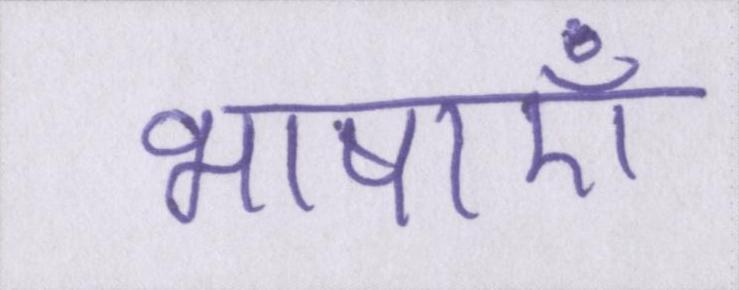 भाषाएँ